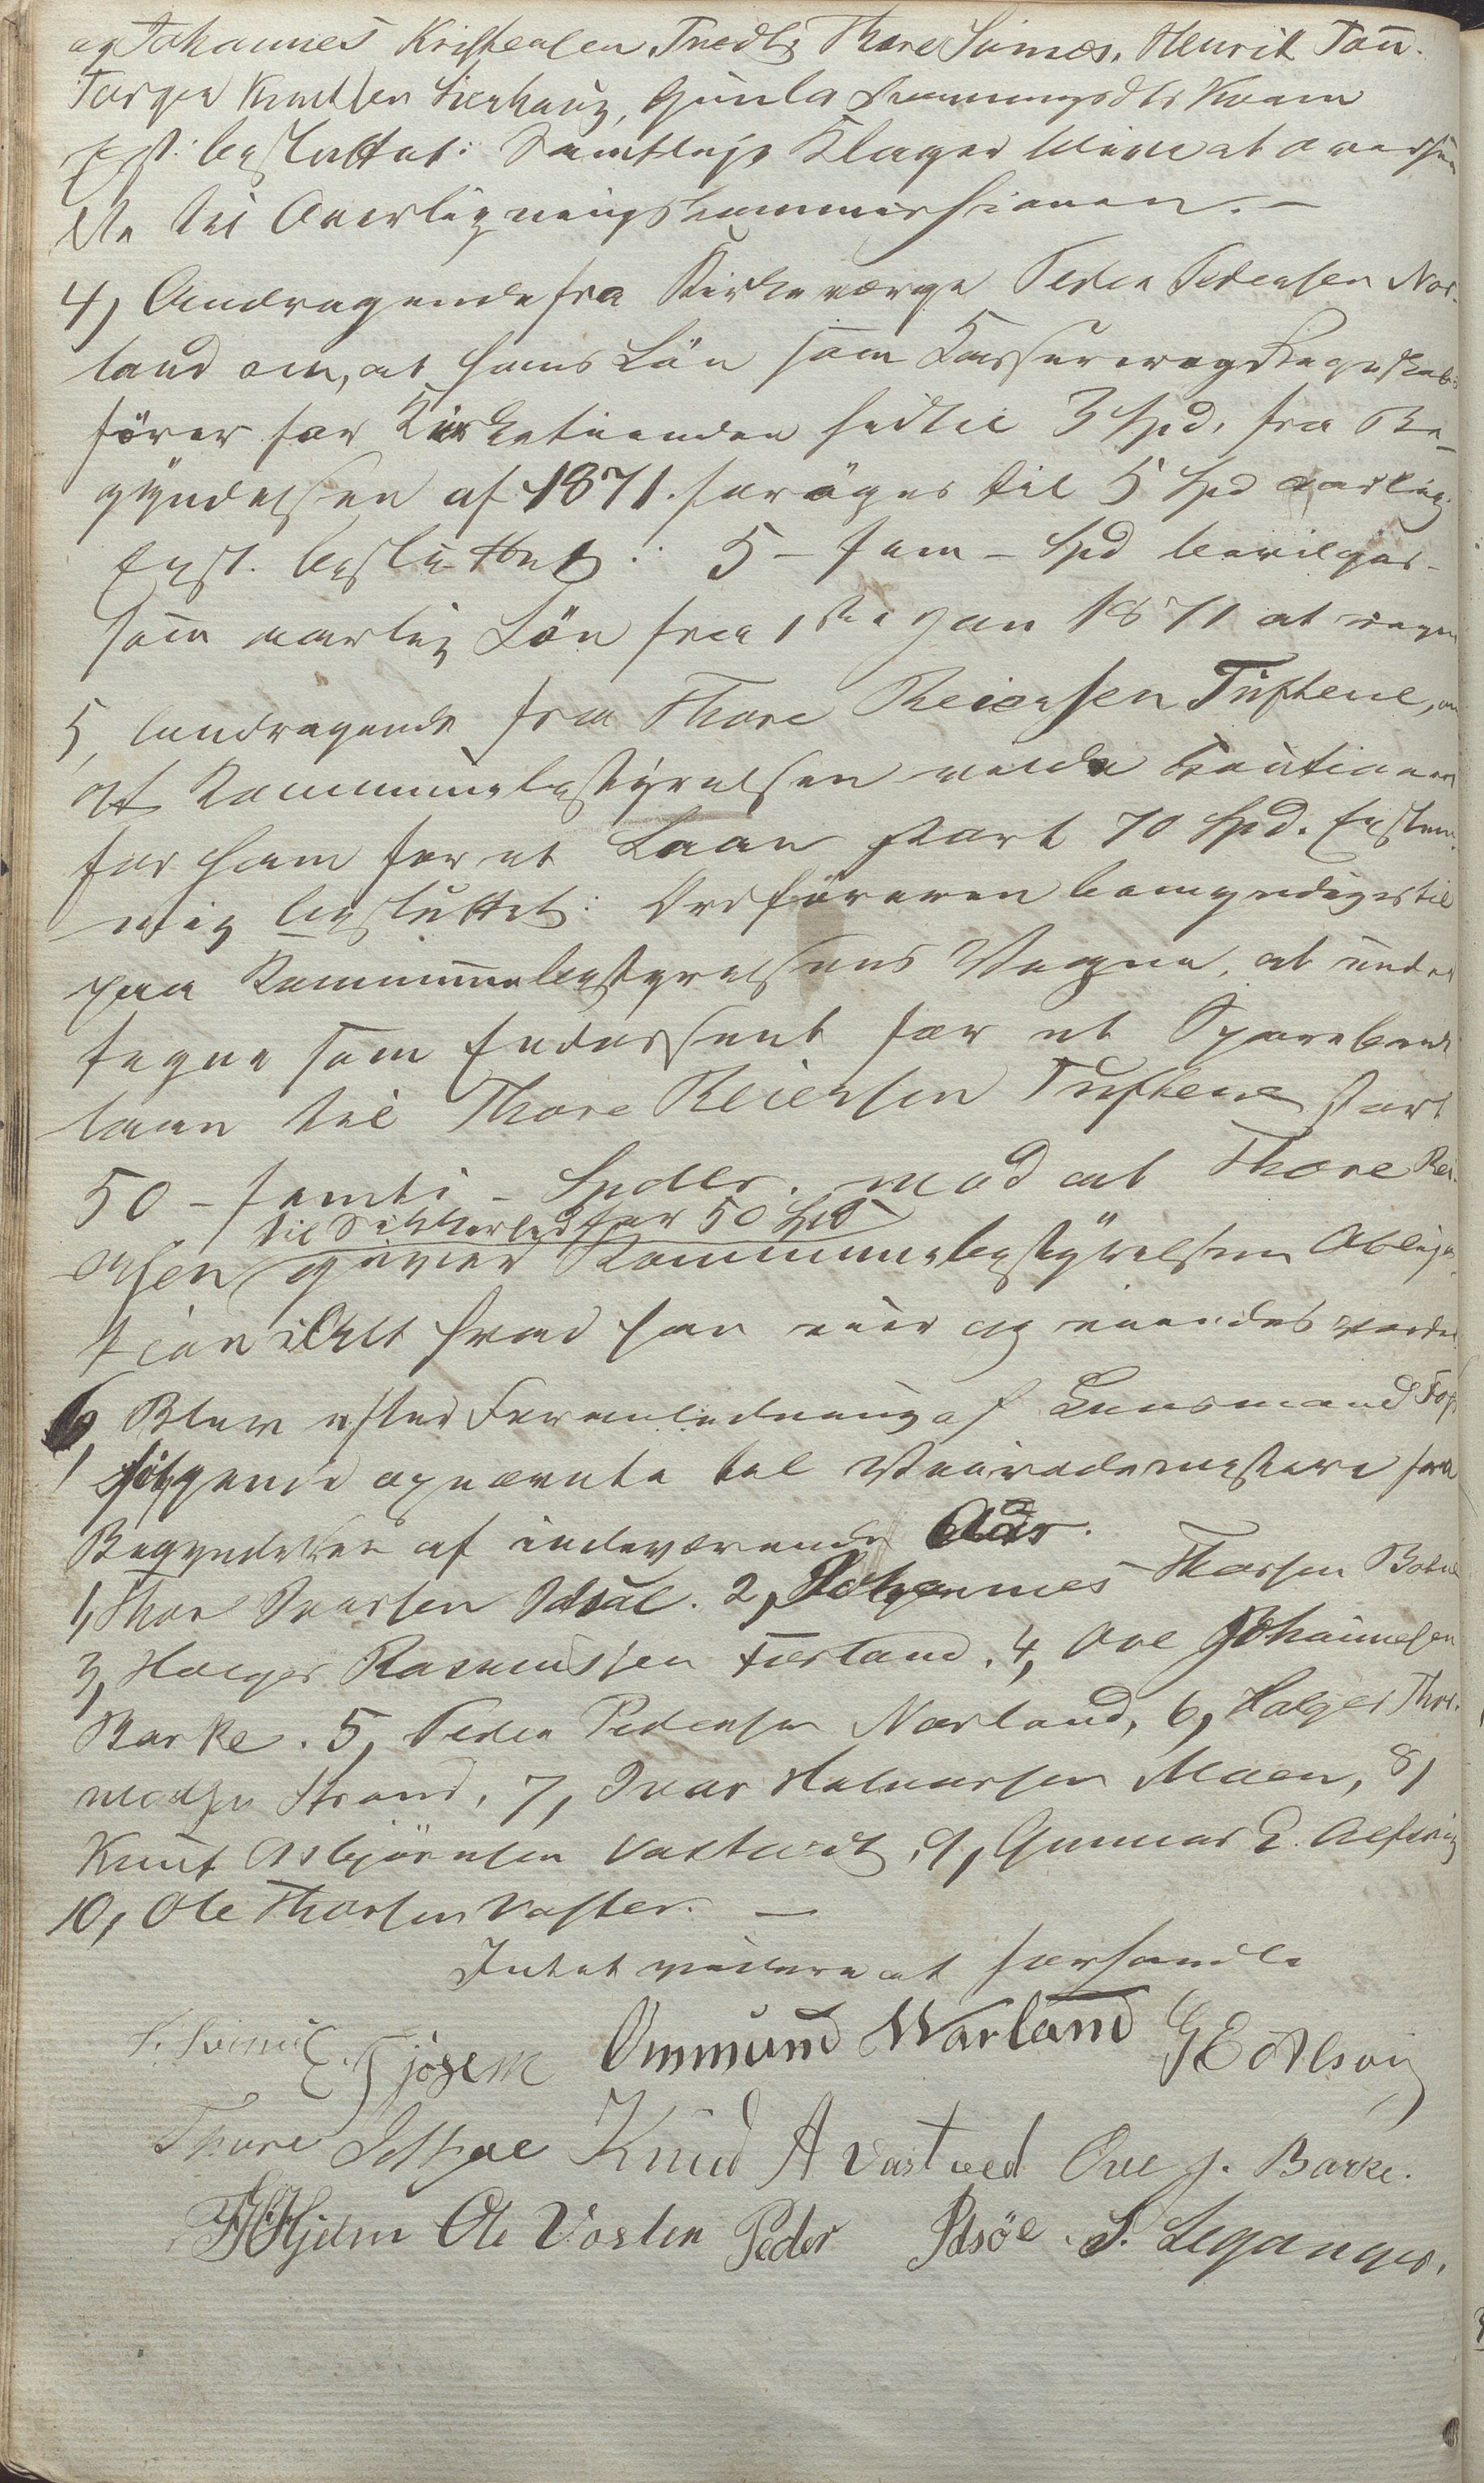 og Johannes Kristensen Tuedt, Thore Sunnes. Henrik Tou.
Torger Knudsen Lierhaug, Gunla Kvam
Est. besluttet: Samtlige Klager bliver at oversen
de til Overligningskommissionen. –
4, Andragende fra Kirkeværge Peder Pedersen Nor-
land om, at hans Lön som Kasserer og Regnskabs
förer for Kirketienden hidtil 3 Spd, fra Be-
gyndelsen af 1871. forøges til 5 Spd aarlig.
Enst. besluttet: 5 – fem – Spd bevilges
som aarlig Lön fra 1ste Jan 1871 at regne
5, Andragende fra Thore Reiersen Tuftene, om
at Kommunebestyrelsen vilde kautionere
for ham for et Laan stort 70 Spd. Enstem-
mig besluttet: Ordföreren bemyndiges til
paa Kommunebestyrelsens Vegne, at under
tegne som Endossent for et Sparebank
laan til Thore Reiersen Tuftene stort
50 – femti – Spdlr. mod at Thore Rei-
til Sikkerhed for 50 Spd
ersen giver Kommunebestyrelsen Obliga-
tion i Alt hvad han eier og eiendes vorder
6, Blev efter Foranledning af Lensmand
følgende opnævnte til Veirodemestere fra
Begyndelsen af indeværende Aar.
1, Thore Ivarsen Idsal. 2, Johannes Thorsen Botne
3, Holger Rasmussen Førland. 4, Ove Johannesen
Barke. 5, Peder Pedersen Norland, 6, Holger Thor-
modsen Strand, 7, Ivar Halvorsen Maen, 8,
Knut Asbjørnsen Vastvedt, 9, Gunnar E. Alsvig
10, Ole Thorsen Voster. –
Intet videre at forhandle
E. Tjösem Ommund Warland G E Alsvig
Thore Idsöe Knud A Vastved Ove J. Barke.
Hjelm Ole Voster Peder Idsöe. S. Leganger.